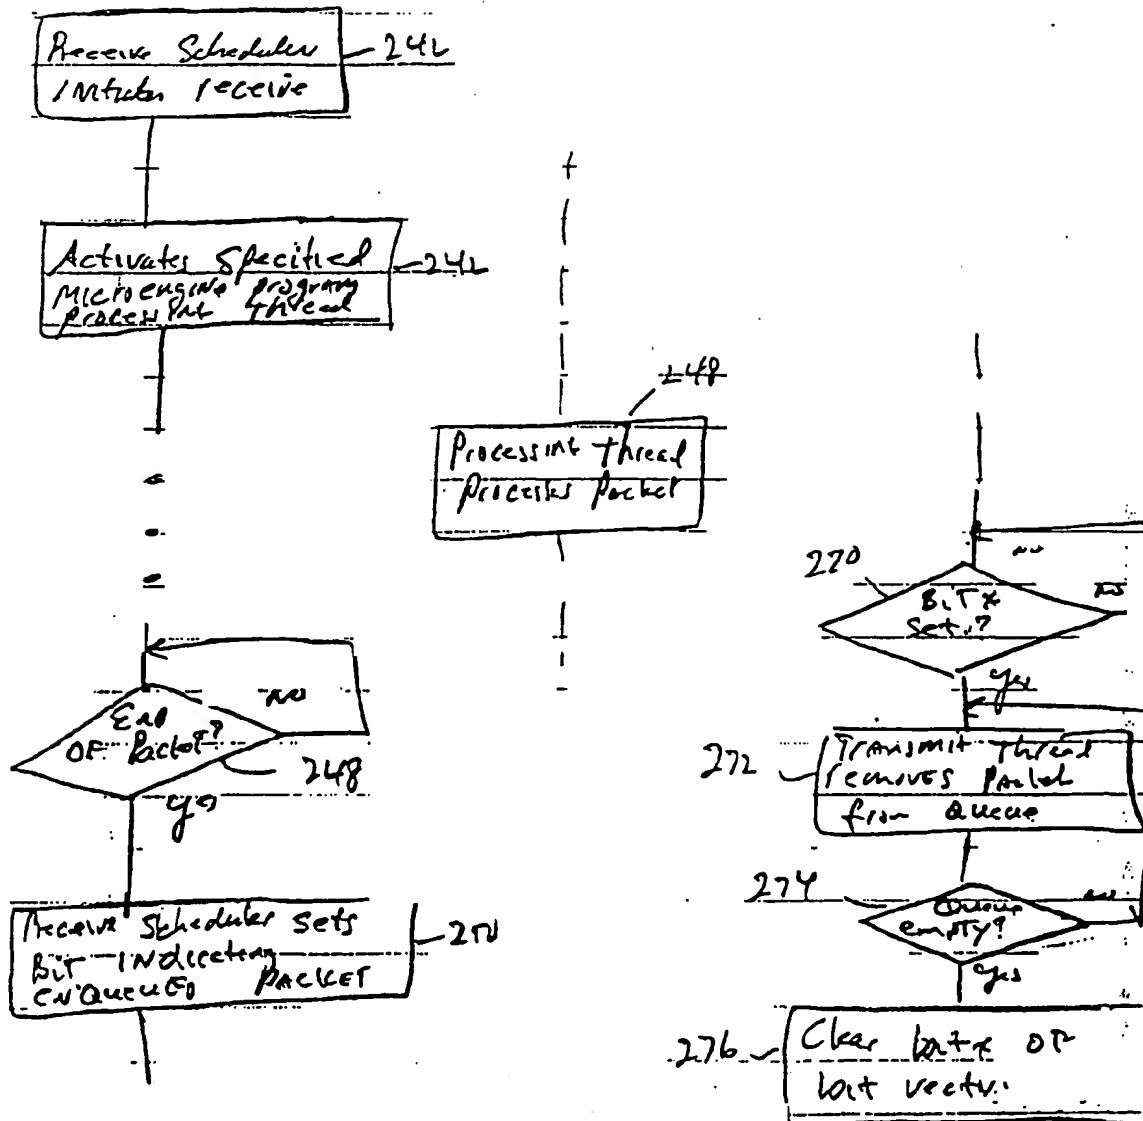 Receive Scheduler
Initiates receive
242
Activates Specified
Microengine program
processing thread
242
248
Processing thread
processes packet
End
OF Packet?
NO
248
yes
Receive Scheduler sets
Bit indicating
ENQUEUED PACKET
270
NO
BiTx
set?
NO
yes
272
TRANSMIT thread
removes packet
from Queue
274
Queue
empty?
NO
yes
276
Clear bit x OF
bit vector